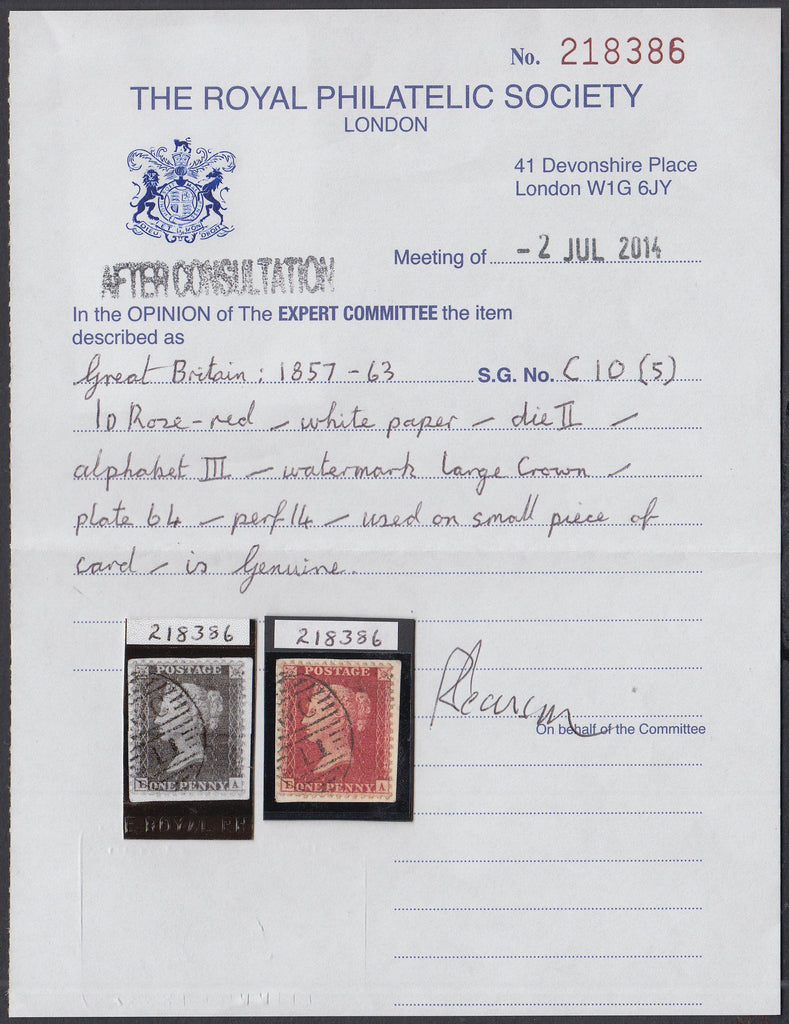 No. 218386
THE ROYAL PHILATELIC SOCIETY
LONDON
41 Devonshire Place
London W1G 6JY
DIEU ET MON DROIT
Meeting of - 2 JUL 2014
AFTER CONSULTATION
In the OPINION of The EXPERT COMMITTEE the item
described as
Great Britain: 1857 - 63 S.G. No. C 10 (5)
1D Rose-red - white paper - die II -
alphabet III - watermark Large Crown -
plate 64 - perf 14 - used on small piece of
card - is Genuine.
218386
POSTAGE
11
E ONE PENNY A
E ROYAL PH
218386
POSTAGE
11
E ONE PENNY A
On behalf of the Committee